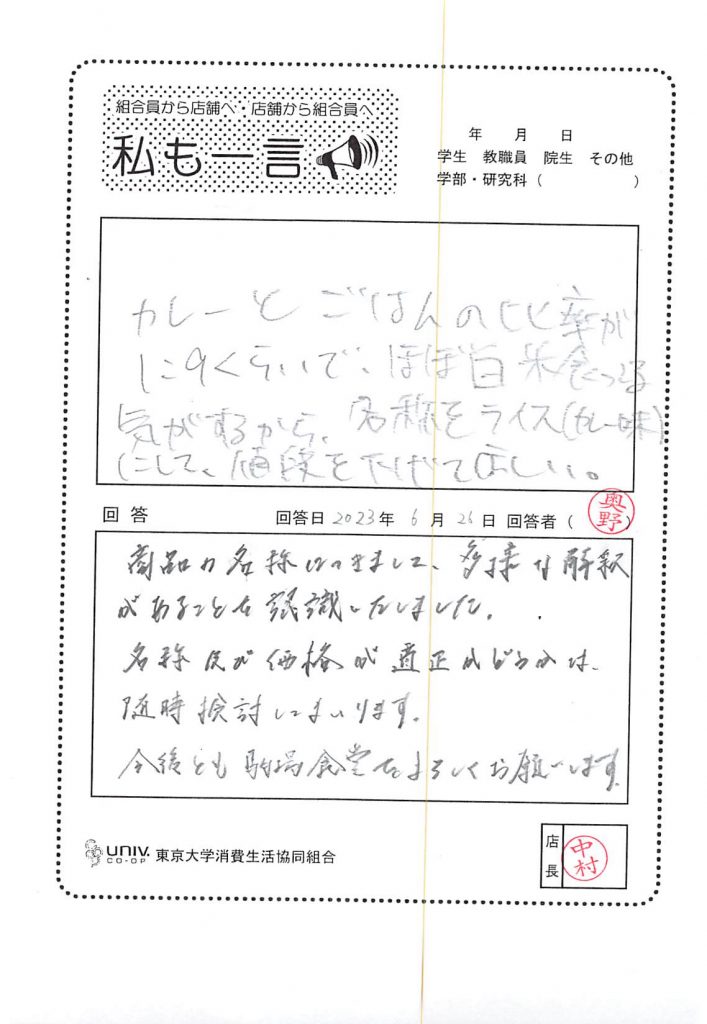 組合員から店舗へ・店舗から組合員へ
私も一言
年 月 日
学生 教職員 院生 その他
学部・研究科（ ）
カレーとごはんの比率が
1:9くらいで、ほぼ白米食ってる
気がするから、名称をライス(カレー味)
にして、値段を下げてほしい。
回答 回答日 2023年 6月 26日 回答者（奥野）
商品の名称につきまして、多様な解釈
があることを認識いたしました。
名称及び価格が適正かどうかは、
随時検討してまいります。
今後とも駒場食堂をよろしくお願いします。
UNIV. CO-OP 東京大学消費生活協同組合
店長 中村